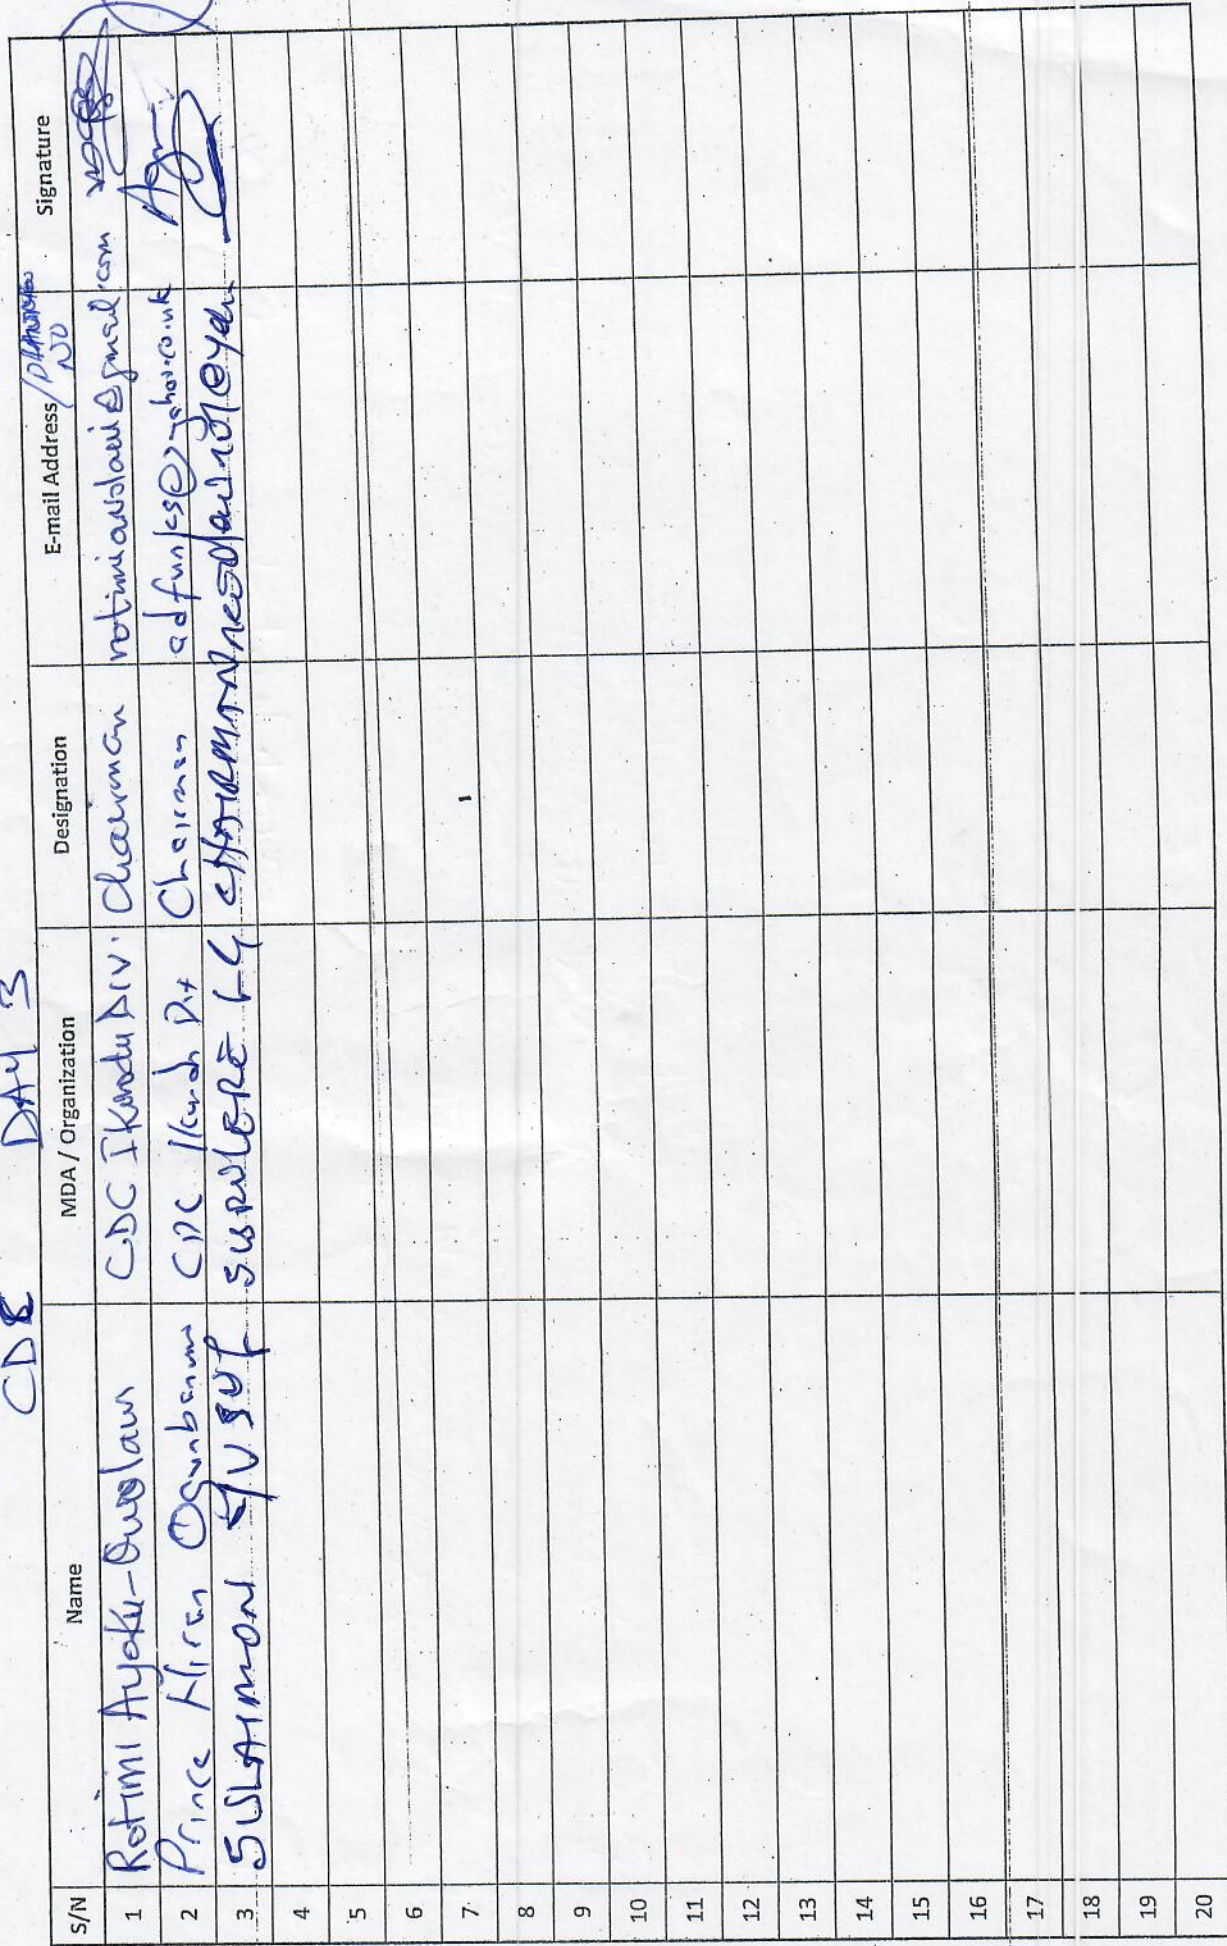 CDC DAY 3
S/N Name MDA / Organization Designation E-mail Address / NO Signature
1 Rotimi Ayoku-Owolawi CDC Ikorodu Div. Chairman rotimiowolawi@gmail.com
2 Prince Niran Ogunbanwo CDC Chairman adfunks@yahoo.co.uk
3 SULAIMON YUSUF SURULERE LG CHAIRMAN
4
5
6
7
8
9
10
11
12
13
14
15
16
17
18
19
20